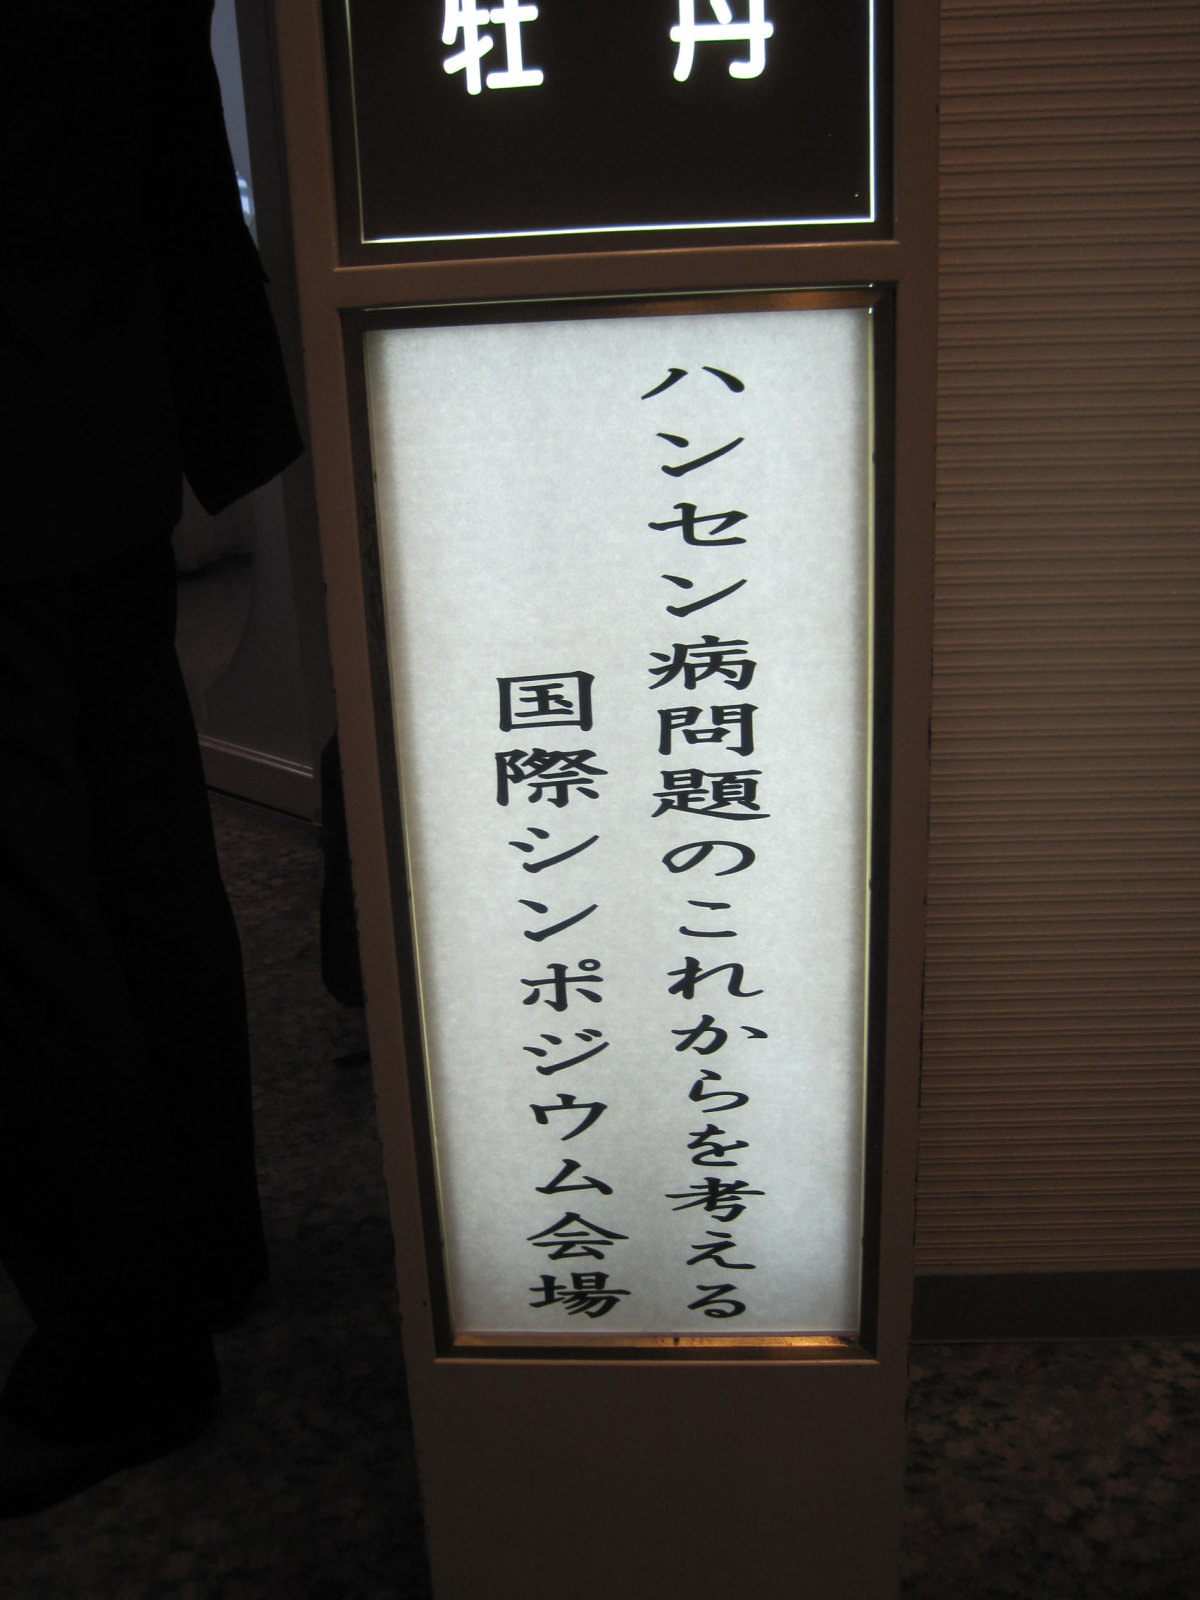 牡丹
ハンセン病問題のこれからを考える
国際シンポジウム会場